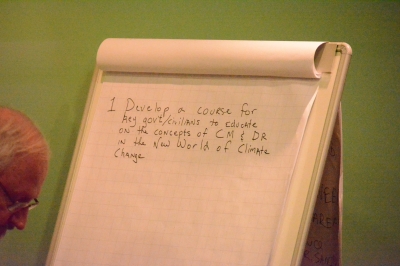 1 Develop a course for
key gov't/civilians to educate
on the concepts of CM & DR
in the New World of Climate
Change